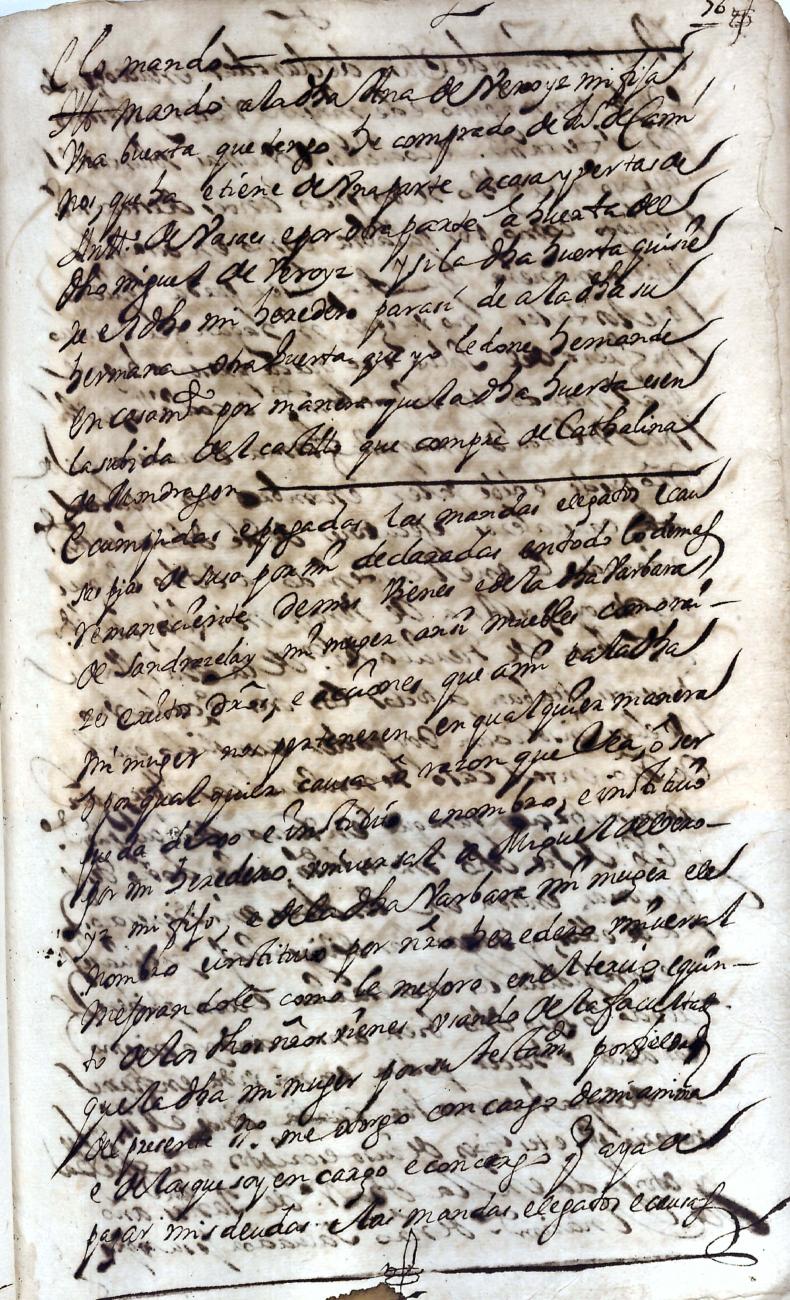 56
E lo mando
Itt mando a la dha Ana de Veroyz mi fija
una huerta que tengo he comprado de de Cam
nos, que ha e tiene de una parte a casa y pertas de
Antt.º de Vasaez e por otra parte la huerta del
dho miguel de Veroyz y si la dha huerta quisie
re el dho mi heredero para si de a la dha su
hermana otra huerta que yo le done hernande
en casamº por manera que la dha huerta es en
la subida del castillo que compre de Cathalina
de Mondragon
E cumplidas e pagadas las mandas e legatos e cau
sas pias de suso por mi declaradas en todo lo demas
remanesciente de mis vienes e de la dha Varbara
de Landrazelay mi muger ansi muebles como rai
zes creditos drõs, e actiones que a mi e a la dha
mi muger nos pertenezen en qualquier manera
o por qual quier causa o razon que sea, o ser
pueda dexo e instituio e nombro, e instituio
por mi heredero universal a Miguel de Vero
yz mi fijo, e de la dha Varbara mi muger e le
nombro e instituio por nro heredero universal
mejorandole como le mejoro en el tercio e quin
to de los dhos nros vienes usando de la facultad
que la dha mi muger por su testamº por fee
del presente no me otorgo con cargo de mi anima
e de las que soy en cargo e con cargo q aya de
pagar mis deudas e las mandas e legatos e causas